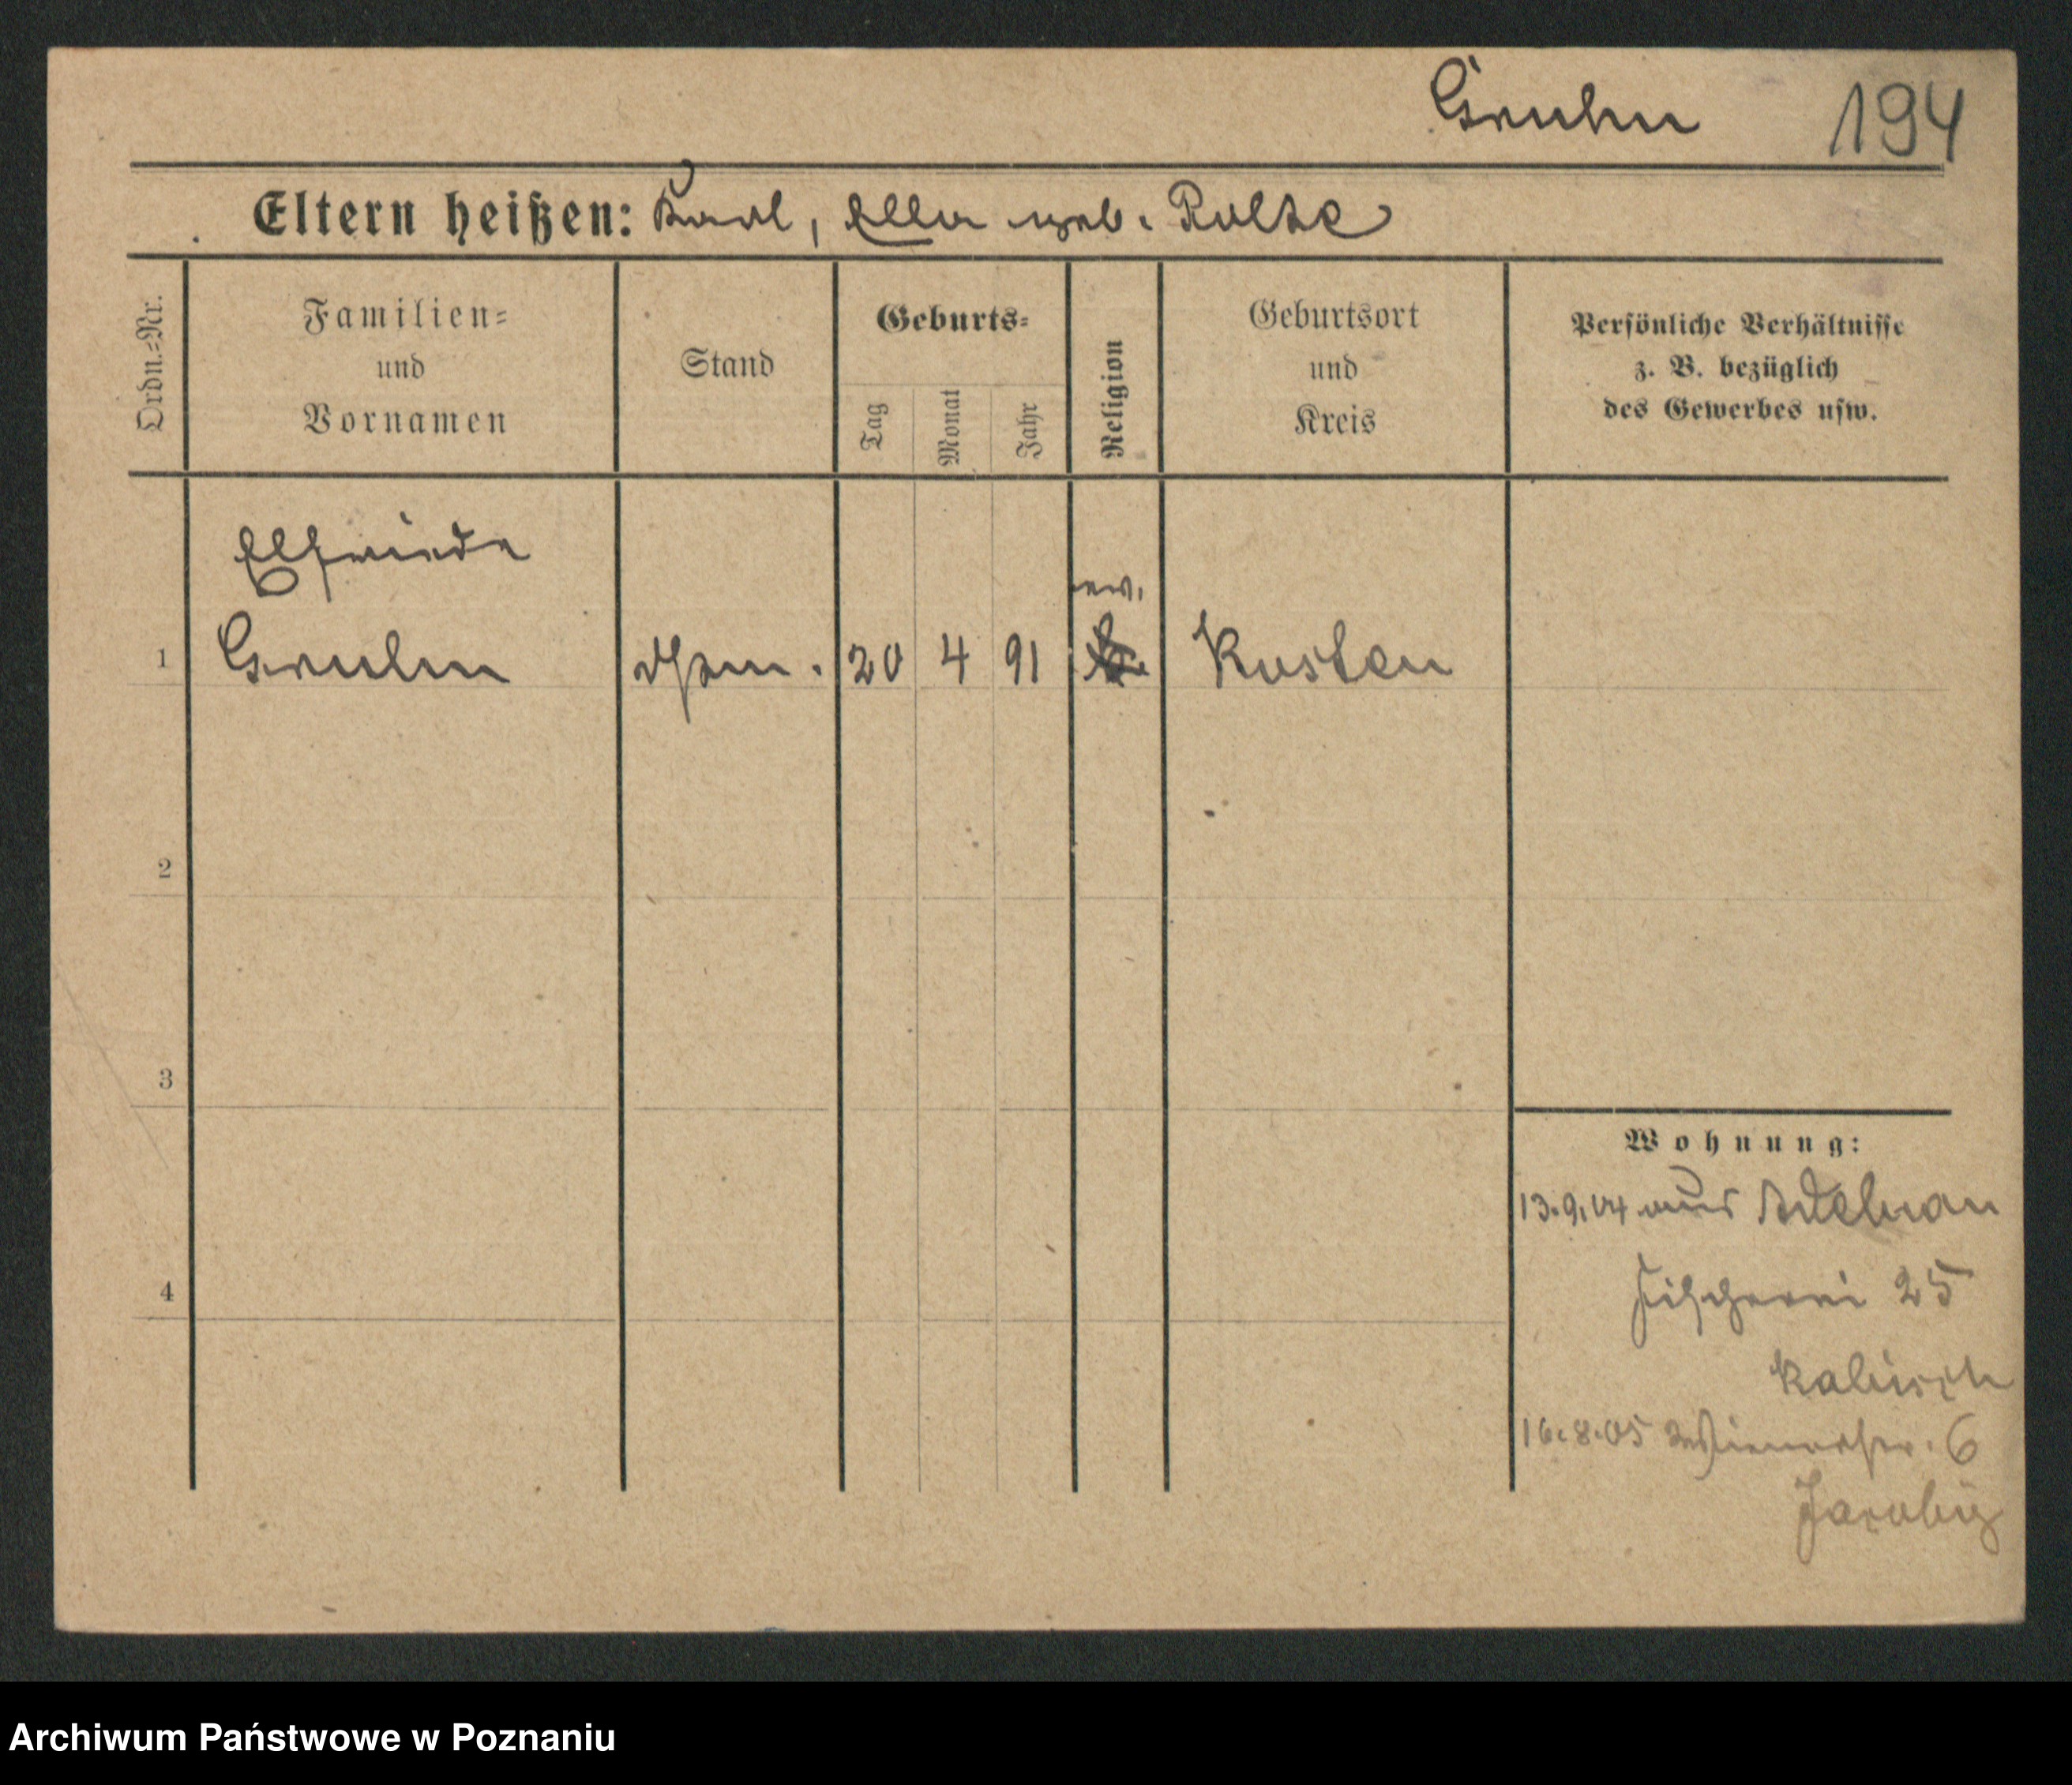 Gruhn 194
Eltern heißen: Karl, Ella geb. Nolte
Ordn.=Nr.
Familien=
und
Vornamen
Stand
Geburts=
Tag
Monat
Jahr
Religion
Geburtsort
und
Kreis
Persönliche Verhältnisse
z. B. bezüglich
des Gewerbes usw.
Elfriede
ev.
1 Gruhn 20 4 91 Kosten
2
3
4
Wohnung:
13.9.04 aus Adelnau
Fischerei 25
16.8.05 6
Archiwum Państwowe w Poznaniu